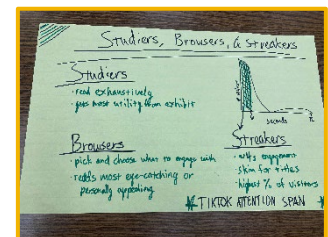 Studiers, Browsers, & Streakers
Studiers
· read exhaustively
· gets most utility from exhibit
# visitors
seconds
Browsers
· pick and choose what to engage with
· reads most eye-catching or
personally appealing
Streakers
engagement
· skim for titles
· highest % of visitors
* TIKTOK ATTENTION SPAN *